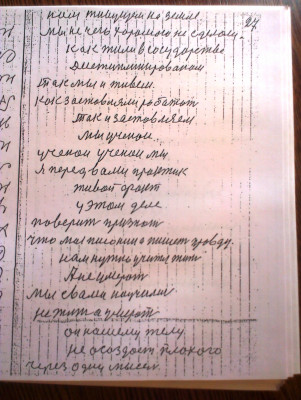 нам живущим на земле 24
мы не чего хорошого не сделали.
как жили в государство
так мы и живем.
как заставляли работат
так и заставляем
мы ученом.
ученом ученом мы
я перед вами практик
живой факт
у этом деле
поверит признат
что мысл пишет правду.
нам нужно учится жит
А не умерат
мы с вами научили
не жит а умерат
он нашему телу
не создаст плохого
через одну мысел.